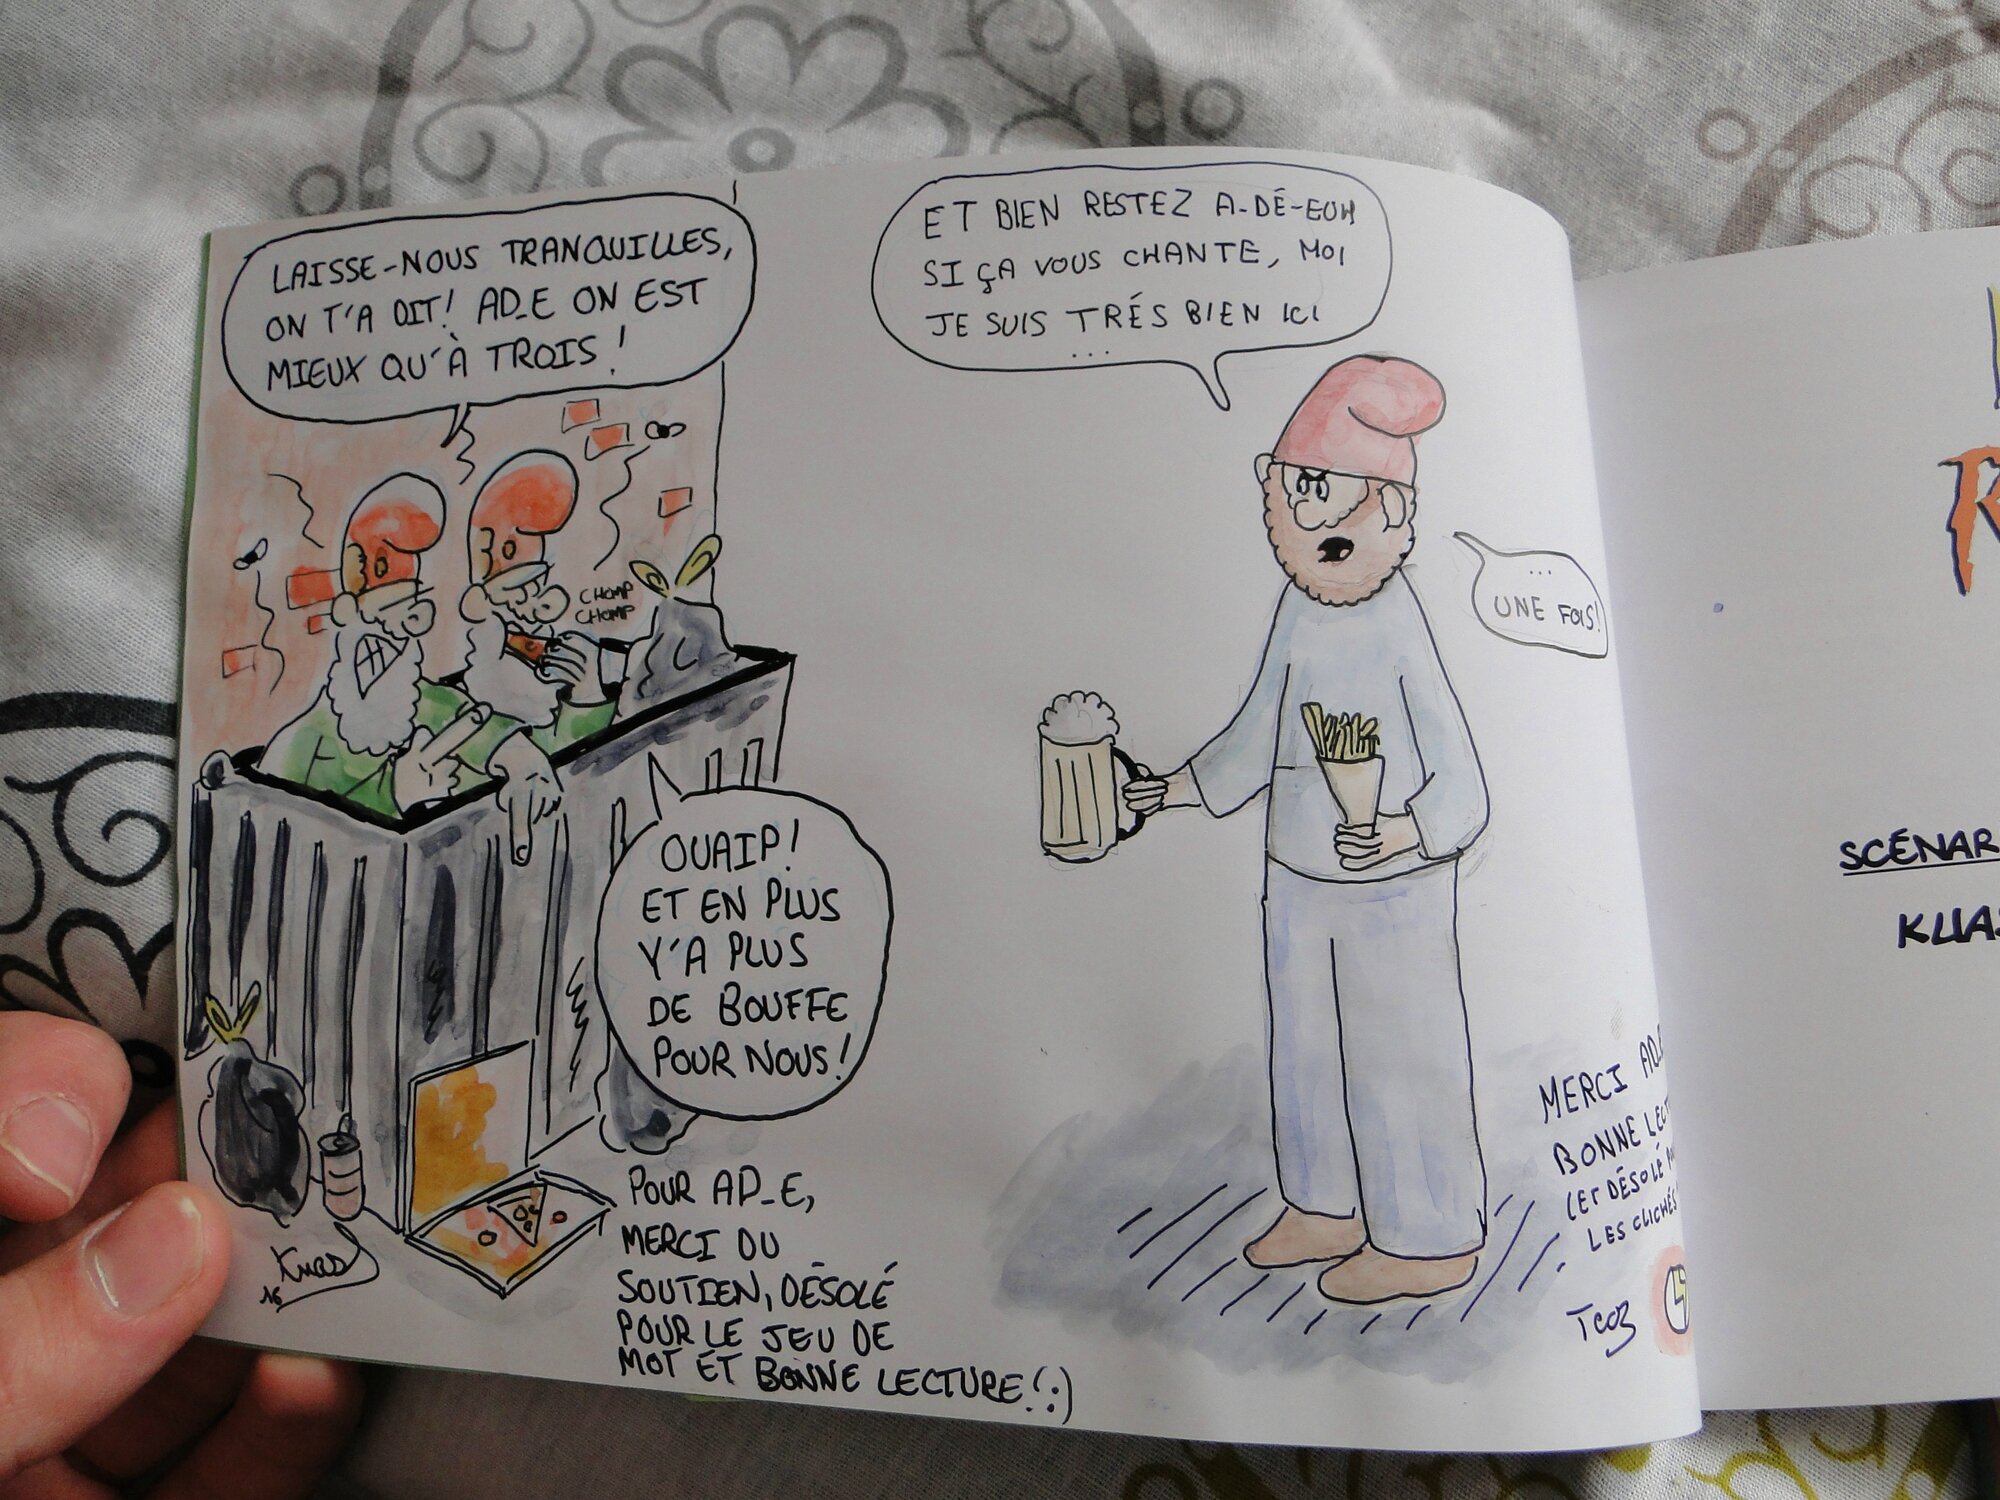 LAISSE-NOUS TRANQUILLES,
ON T'A DIT! AD_E ON EST
MIEUX QU'À TROIS!
CHOMP
CHOMP
OUAIP!
ET EN PLUS
Y'A PLUS
DE BOUFFE
POUR NOUS!
ET BIEN RESTEZ A-DÉ-EUH
SI ÇA VOUS CHANTE, MOI
JE SUIS TRÉS BIEN ICI
...
...
UNE FOIS!
POUR AD_E,
MERCI DU
SOUTIEN, DÉSOLÉ
POUR LE JEU DE
MOT ET BONNE LECTURE! :)
Kuas
16
MERCI AD_E
BONNE
(ET DÉSOLÉ
LES CLICHÉS
Tcoz
SCÉNAR